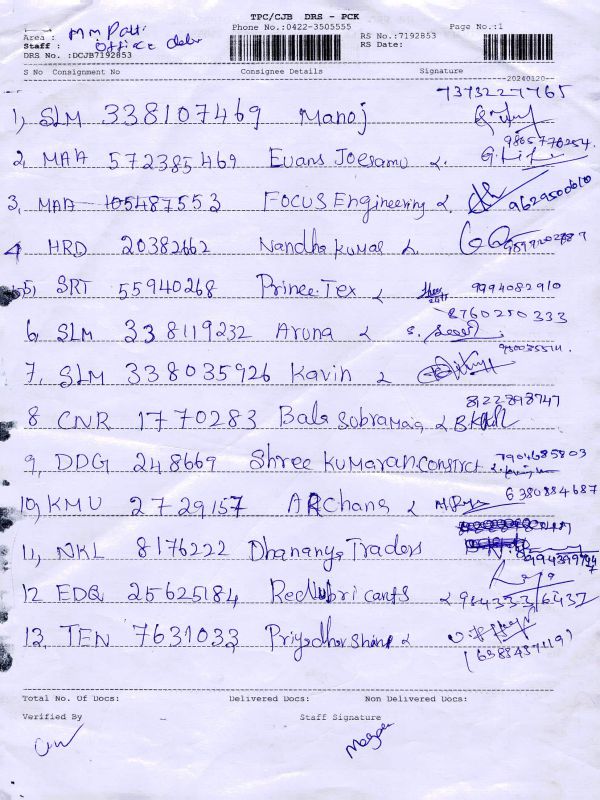 TPC/CJB DRS - PCK
Area : M M Patti Phone No.:0422-3505555 Page No.:1
Staff : Office RS No.:7192853
DRS No. :DCJB7192853 RS Date:
S No Consignment No Consignee Details Signature
20240120--
7373227765
1, SLM 338107469 Manoj
9865770254
2, MAA 572385469 Evans Joesamu
3, MAA 105487553 FOCUS Engineering 9629500610
4, HRD 20382662 Nandha Kumar
5) SRT 55940268 Prince.Tex 9994082910
8760250333
6, SLM 338119232 Aruna
7, SLM 338035926 Kavin
8122898747
8 CNR 1770283 Bala Subramani
7904685803
9, DDG 248669 Shree Kumaran Constrct
10, KMU 2729157 ARchana 6380884687
11, NKL 8176222 Dhananya Traders
12 EDQ 25625184 Red Lubricants 9843336437
13, TEN 7631033 Priyadharshini
Total No. Of Docs: Delivered Docs: Non Delivered Docs:
Verified By Staff Signature